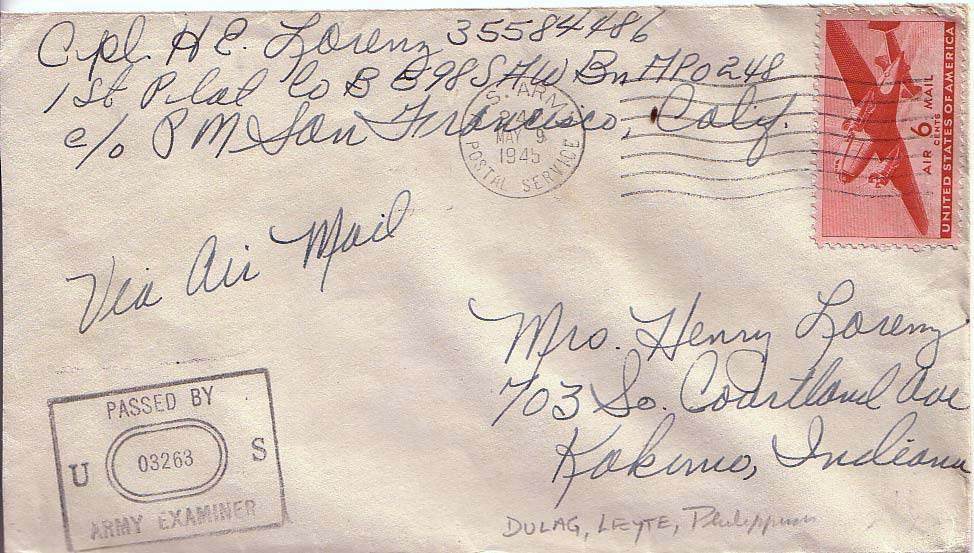 Cpl. H E. Lorenz 35584486
1st Pilat Co B B98SAW Bn APO 248
c/o P M San Francisco, Calif.
U.S. ARMY
MAY 9
1945
POSTAL SERVICE
AIR 6 CENTS MAIL
UNITED STATES OF AMERICA
Via Air Mail
Mrs. Henry Lorenz
703 So. Courtland Ave
Kokomo, Indiana
PASSED BY
U 03263 S
ARMY EXAMINER
DULAG, LEYTE, Philippines